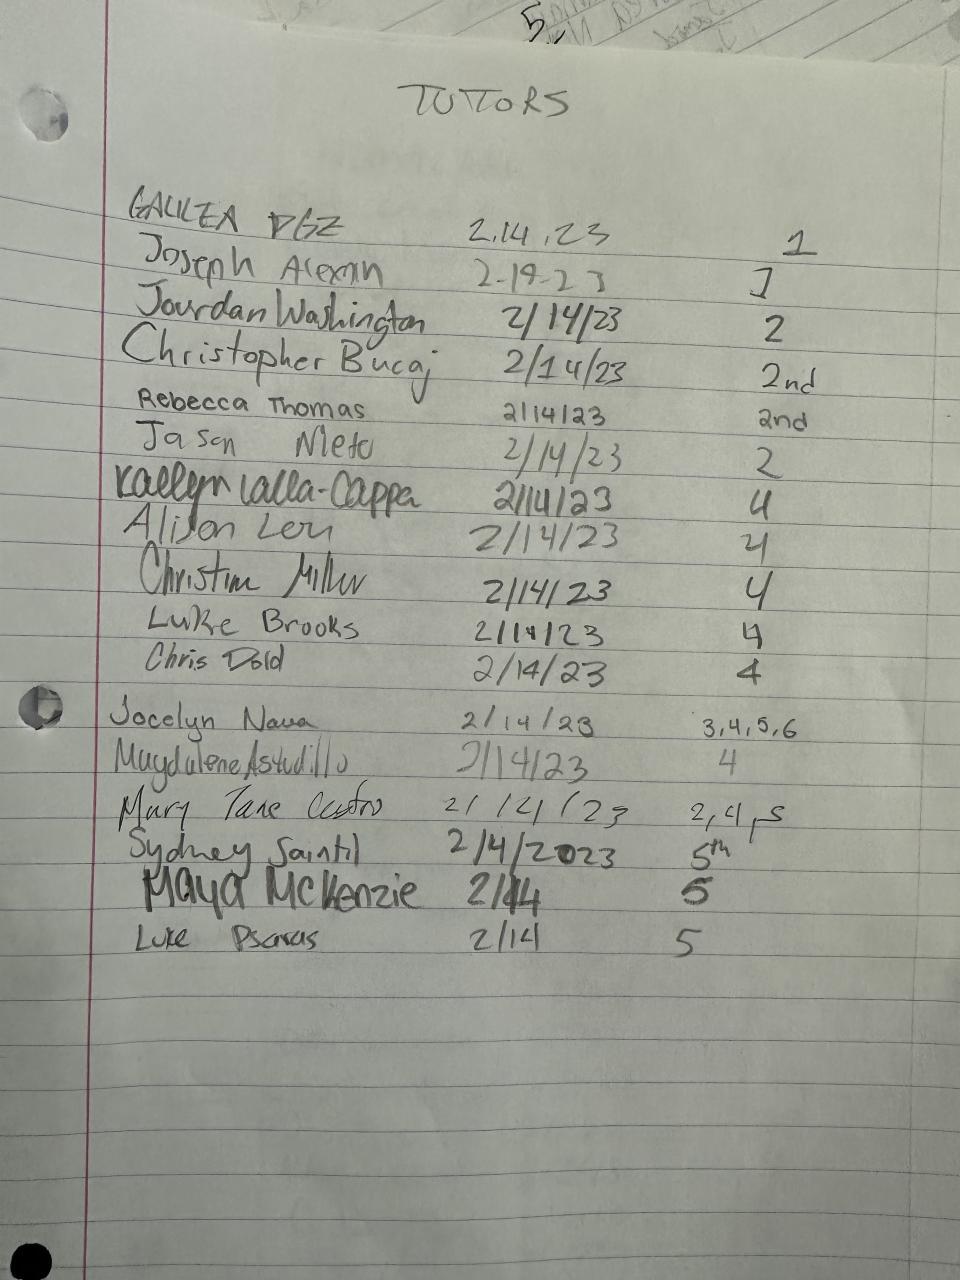 5
TUTTORS
GALILEA DGZ 2.14.23 1
Joseph 2-14-23 1
Jourdan Washington 2/14/23 2
Christopher Bucaj 2/14/23 2nd
Rebecca Thomas 2/14/23 2nd
Jason Nieto 2/14/23 2
Kaelyn Lalla-Cappa 2/14/23 4
Alison 2/14/23 4
Christine Miller 2/14/23 4
Luke Brooks 2/14/23 4
Chris Dold 2/14/23 4
Jocelyn Nava 2/14/23 3,4,5,6
Magdalene Astudillo 2/14/23 4
Mary Jane Castro 2/14/23 2,4,5
Sydney Saintil 2/4/2023 5th
Maya McKenzie 2/14 5
Luke Psaras 2/14 5